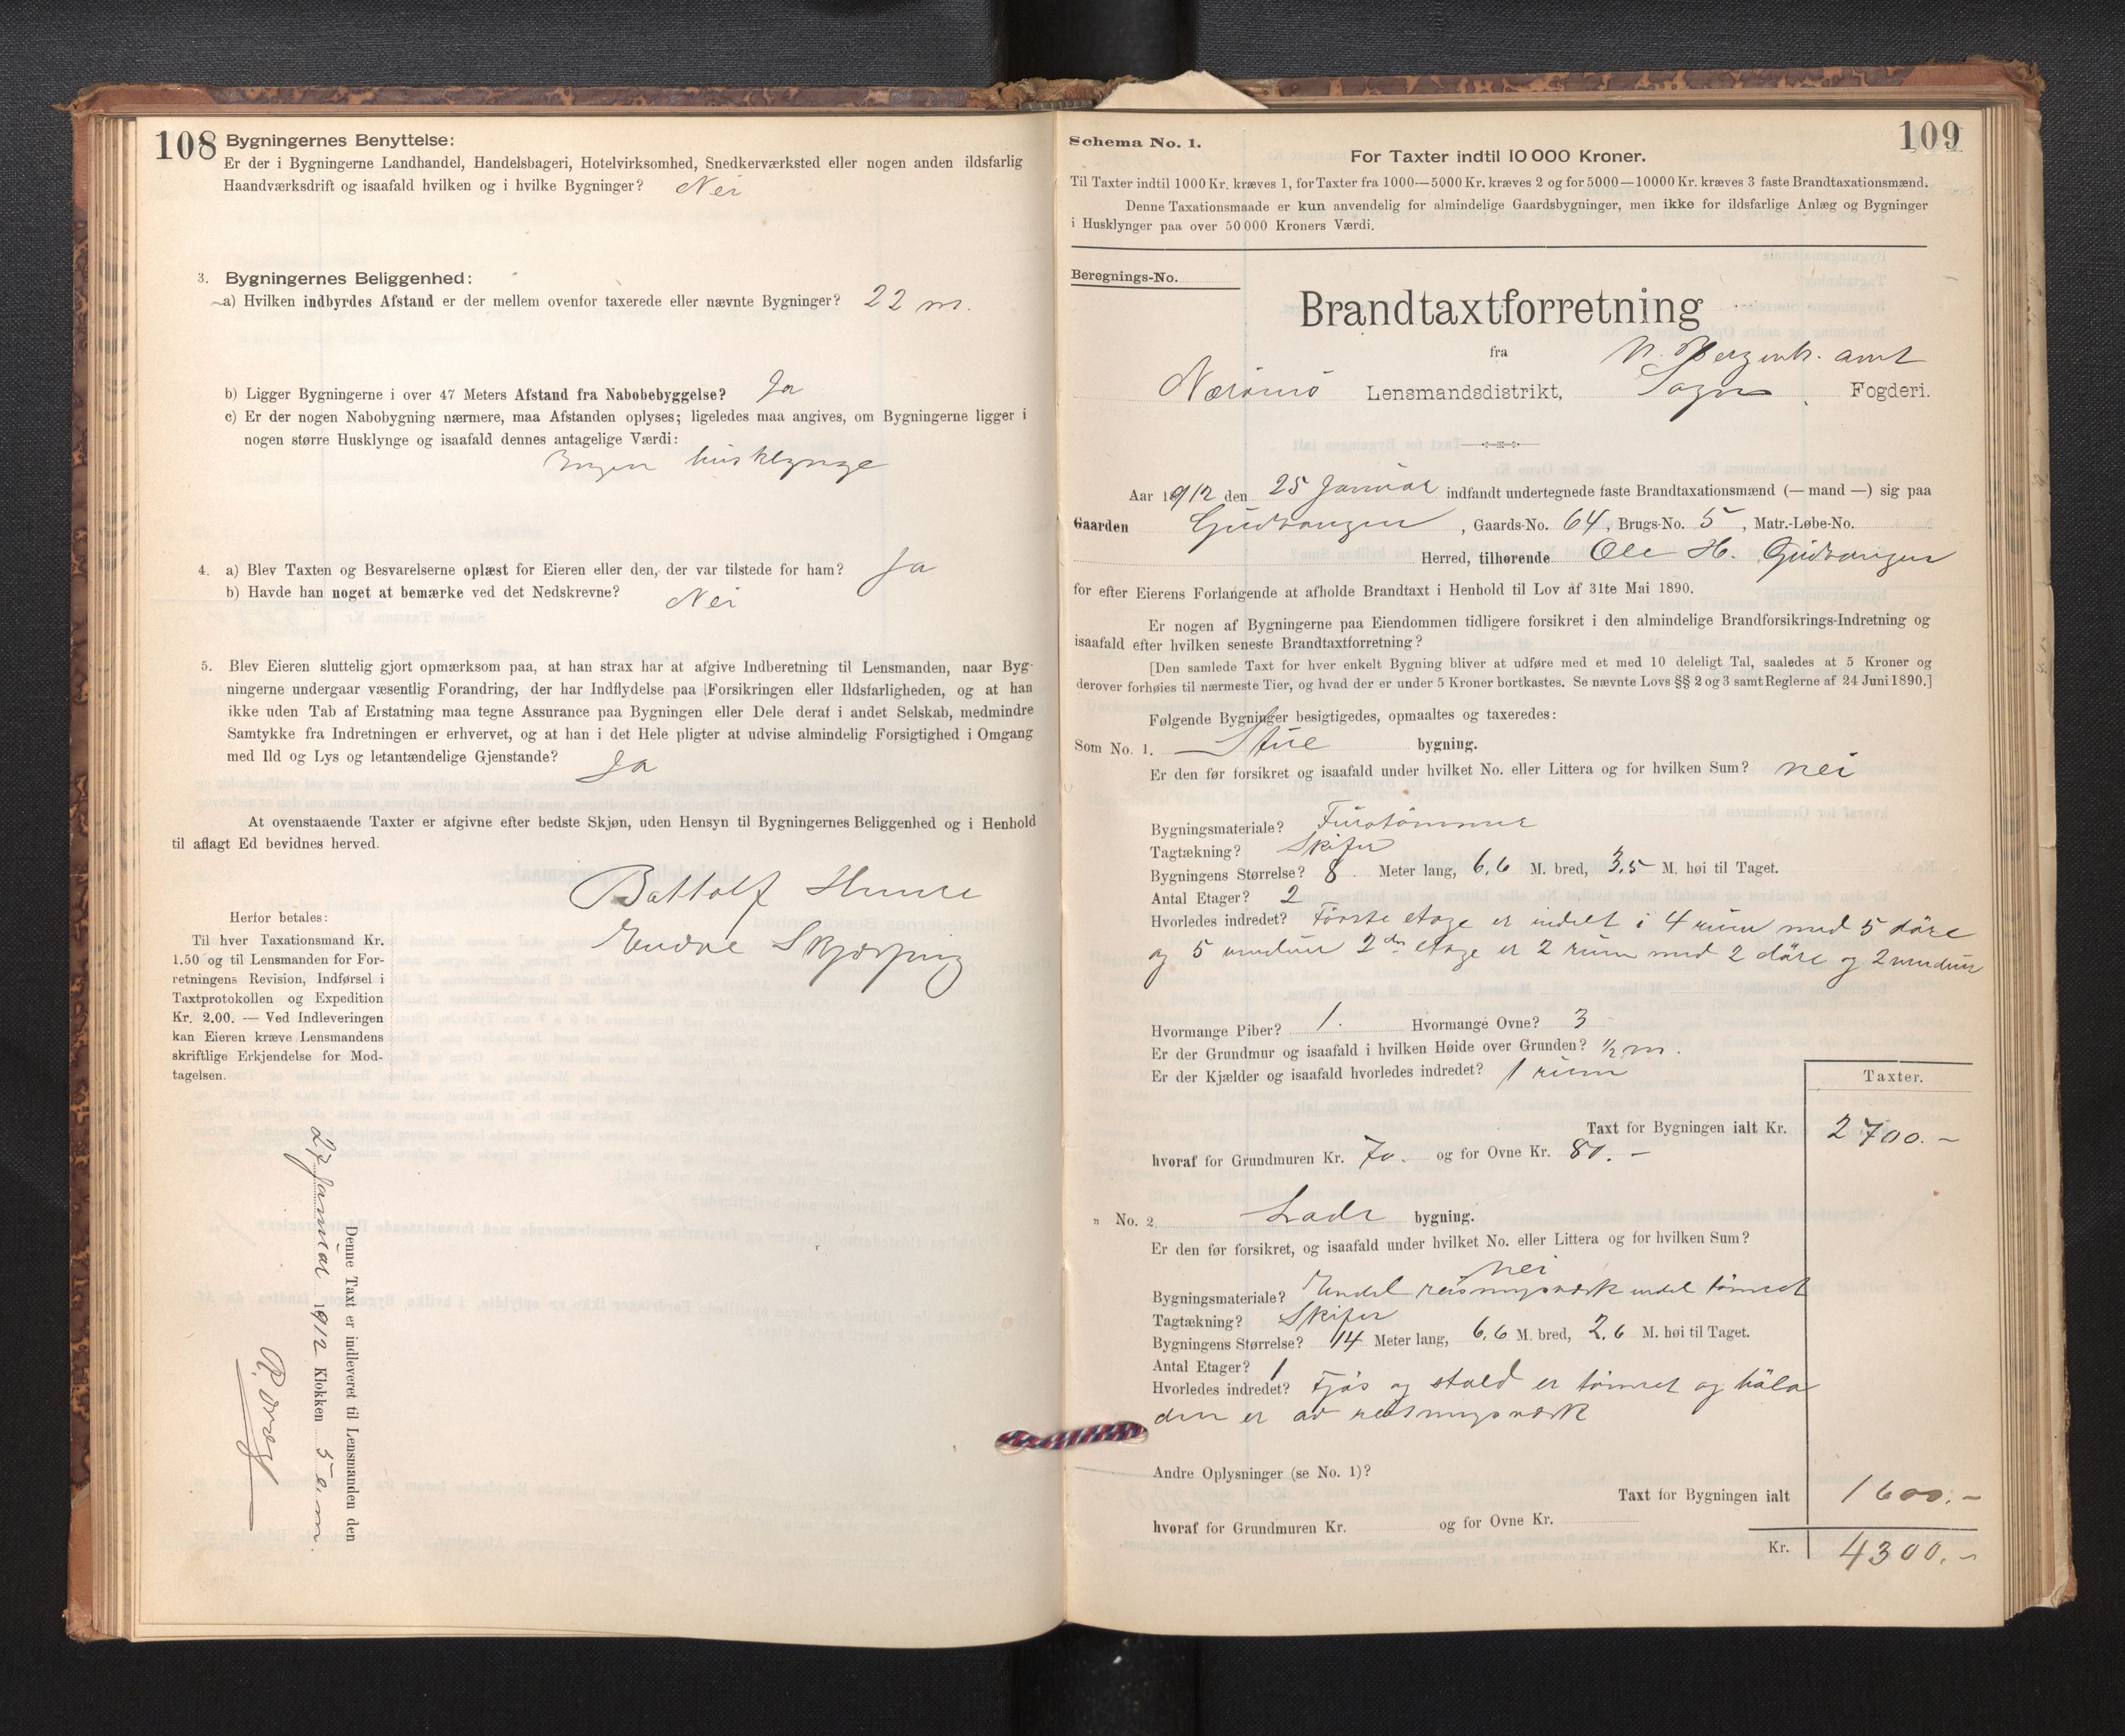 108
Bygningernes Benyttelse:
Er der i Bygningerne Landhandel, Handelsbageri, Hotelvirksomhed, Snedkerværksted eller nogen anden ildsfarlig
Haandværksdrift og isaafald hvilken og i hvilke Bygninger? Nei
3. Bygningernes Beliggenhed:
a) Hvilken indbyrdes Afstand er der mellem ovenfor taxerede eller nævnte Bygninger? 22 m.
b) Ligger Bygningerne i over 47 Meters Afstand fra Nabobebyggelse? Ja
c) Er der nogen Nabobygning nærmere, maa Afstanden oplyses; ligeledes maa angives, om Bygningerne ligger i
nogen større Husklynge og isaafald dennes antagelige Værdi:
Ingen husklynge
4. a) Blev Taxten og Besvarelserne oplæst for Eieren eller den, der var tilstede for ham? Ja
b) Havde han noget at bemærke ved det Nedskrevne? Nei
5. Blev Eieren sluttelig gjort opmærksom paa, at han strax har at afgive Indberetning til Lensmanden, naar Byg-
ningerne undergaar væsentlig Forandring, der har Indflydelse paa Forsikringen eller Ildsfarligheden, og at han
ikke uden Tab af Erstatning maa tegne Assurance paa Bygningen eller Dele deraf i andet Selskab, medmindre
Samtykke fra Indretningen er erhvervet, og at han i det Hele pligter at udvise almindelig Forsigtighed i Omgang
med Ild og Lys og letantændelige Gjenstande? Ja
At ovenstaaende Taxter er afgivne efter bedste Skjøn, uden Hensyn til Bygningernes Beliggenhed og i Henhold
til aflagt Ed bevidnes herved.
Battolf Hunre
Endre Skjerping
Herfor betales:
Til hver Taxationsmand Kr.
1.50 og til Lensmanden for For-
retningens Revision, Indførsel i
Taxtprotokollen og Expedition
Kr. 2.00. — Ved Indleveringen
kan Eieren kræve Lensmandens
skriftlige Erkjendelse for Mod-
tagelsen.
Denne Taxt er indleveret til Lensmanden den
27 Januar 1912 Klokken 5 em.
109
Schema No. 1.
For Taxter indtil 10 000 Kroner.
Til Taxter indtil 1000 Kr. kræves 1, for Taxter fra 1000—5000 Kr. kræves 2 og for 5000—10000 Kr. kræves 3 faste Brandtaxationsmænd.
Denne Taxationsmaade er kun anvendelig for almindelige Gaardsbygninger, men ikke for ildsfarlige Anlæg og Bygninger
i Husklynger paa over 50 000 Kroners Værdi.
Beregnings-No.
Brandtaxtforretning
fra N. Bergenh. amt
Nærønø Lensmandsdistrikt, Sogn Fogderi.
Aar 1912 den 25 Januar indfandt undertegnede faste Brandtaxationsmænd (— mand —) sig paa
Gaarden Gudvangen, Gaards-No. 64, Brugs-No. 5, Matr.-Løbe-No.
Herred, tilhørende Ole H. Gudvangen
for efter Eierens Forlangende at afholde Brandtaxt i Henhold til Lov af 31te Mai 1890.
Er nogen af Bygningerne paa Eiendommen tidligere forsikret i den almindelige Brandforsikrings-Indretning og
isaafald efter hvilken seneste Brandtaxtforretning?
[Den samlede Taxt for hver enkelt Bygning bliver at udføre med et med 10 deleligt Tal, saaledes at 5 Kroner og
derover forhøies til nærmeste Tier, og hvad der er under 5 Kroner bortkastes. Se nævnte Lovs §§ 2 og 3 samt Reglerne af 24 Juni 1890.]
Følgende Bygninger besigtigedes, opmaaltes og taxeredes:
Som No. 1. Stue bygning.
Er den før forsikret og isaafald under hvilket No. eller Littera og for hvilken Sum? nei
Bygningsmateriale? Furutømmer
Tagtækning? Skifer
Bygningens Størrelse? 8 Meter lang, 6,6 M. bred, 3,5 M. høi til Taget.
Antal Etager? 2
Hvorledes indredet? Første etage er indelt i 4 rum med 5 døre
og 5 vinduer 2den etage er 2 rum med 2 døre og 2 vinduer
Hvormange Piber? 1. Hvormange Ovne? 3
Er der Grundmur og isaafald i hvilken Høide over Grunden? ½ m.
Er der Kjælder og isaafald hvorledes indredet? 1 rum
Taxter.
Taxt for Bygningen ialt Kr. 2700.–
hvoraf for Grundmuren Kr. 70. og for Ovne Kr. 80.–
" No. 2 Lade bygning.
Er den før forsikret, og isaafald under hvilket No. eller Littera og for hvilken Sum?
nei
Bygningsmateriale? Endel reisningsværk endel tømret
Tagtækning? Skifer
Bygningens Størrelse? 14 Meter lang, 6,6 M. bred, 2,6 M. høi til Taget.
Antal Etager? 1
Hvorledes indredet? Fjøs og stald er tømret og høla
den er av reisningsværk
Andre Oplysninger (se No. 1)?
Taxt for Bygningen ialt 1600.–
hvoraf for Grundmuren Kr. og for Ovne Kr.
Kr. 4300.–